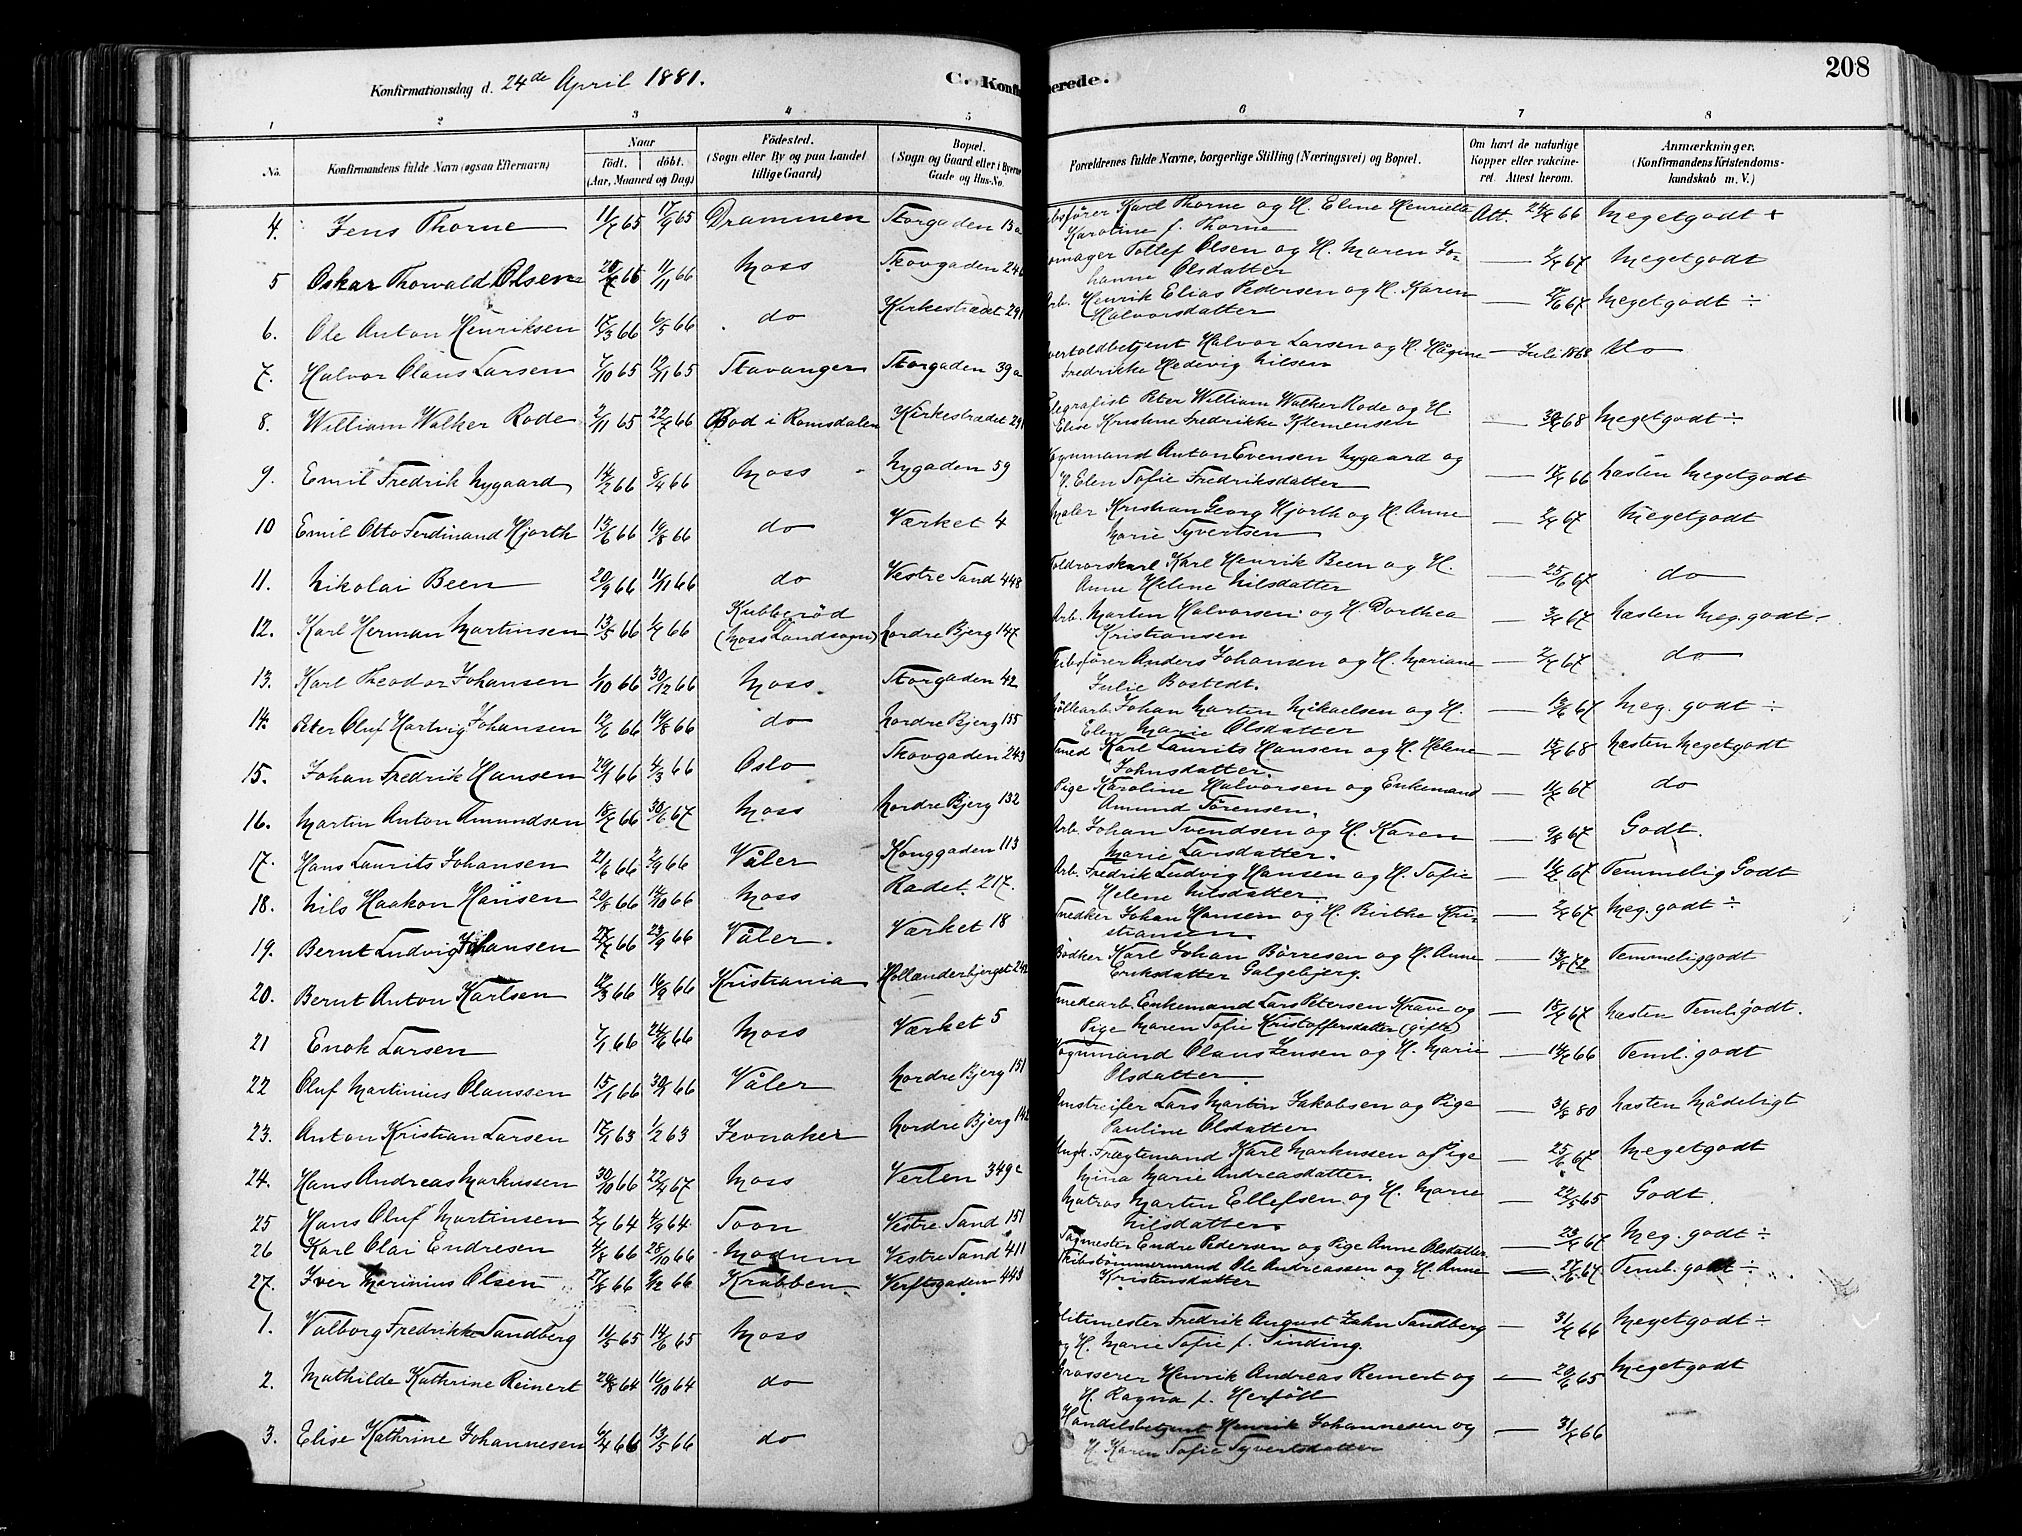 Konfirmationsdag d. 24de April 1881.
C. Konfi
erede.
208
1 2 3 4 5 6 7 8
No.
Konfirmandens fulde Navn (ogsaa Efternavn)
Naar
födt. döbt.
(Aar, Maaned og Dag)
Födested.
(Sogn eller By og paa Landet
tillige Gaard)
Bopæl.
(Sogn og Gaard, eller i Byerne
Gade og Hus-No.
Forældrenes fulde Navne, borgerlige Stilling (Næringsvei) og Bopæl.
Om havt de naturlige
Kopper eller vakcine-
ret. Attest herom.
Anmærkninger.
(Konfirmandens Kristendoms-
kundskab m. V.)
4. Jens Thorne 65 65 Drammen Storgaden 13a Karl Thorne og H. Eline Henriette Att. 66 Megetgodt +
Karoline f. Thorne
5 Oskar Thorvald Olsen 66 11/11 66 Moss Skovgaden Tollef Olsen og H. Maren Jo- — 67 Megetgodt
hanne Olsdatter
6. Ole Anton Henriksen 17/3 66 6/5 66 do Kirkestrædet 291 Arb. Henrik Elias Pedersen og H. Karen — 67 Megetgodt ÷
Halvorsdatter
7. Halvor Olaus Larsen 7/10 65 12/11 65 Stavanger Storgaden 39a Halvor Larsen og H. Hågine — Juli 1868 Uto
Fredrikke Hedevig Nilsen
8. William Walker Rode 2/11 65 66 Bod i Romsdalen Kirkestrædet 291 legrafist Peter William Walker Rode og H. — 68 Megetgodt ÷
Elise Kristine Fredrikke Klemensen
9. Emil Fredrik Nygaard 14/2 66 8/4 66 Moss Nygaden 59 Anton Evensen Nygaard og
H. Elen Sofie Fredriksdatter — 66 Næsten Megetgodt
10 Emil Otto Ferdinand Hjorth 13/6 66 19/8 66 do Værket 4 Maler Kristian Georg Hjorth og H. Anne — 67 Megetgodt
Marie Syvertsen
11. Nikolai Been 20/9 66 11/11 66 do Vestre Sand 448 Toldrorskarl Karl Henrik Been og H. — 25/6 67 do
Anne Helene Nilsdatter
12. Karl Herman Martinsen 13/5 66 66 Kubberød
(Moss Landsogn) Nordre Bjerg 147 Arb. Martin Halvorsen og H. Dorthea — 67 Næsten Meg. godt ÷
Kristiansen
13. Karl Theodor Johansen 1/10 66 30/12 66 Moss. Storgaden 42 Skibsfører Anders Johansen og H. Mariane — 67 do
Julie Bostedt.
14. Peter Oluf Hartvig Johansen 12/6 66 19/8 66 do Nordre Bjerg 155 Johan Martin Mikaelsen og H. — 67 Meg. godt ÷
Elen Marie Olsdatter
15. Johan Fredrik Hansen 29/1 66 4/3 66 Oslo Skovgaden 243 Smed Karl Laurits Hansen og H. Helene — 68 Næsten Megetgodt
Johnsdatter.
16. Martin Anton Amundsen 66 67 Moss Nordre Bjerg 132 Pige Karoline Halvorsen og Enkemand — 67 do
Amund Sørensen.
17. Hans Laurits Johansen 21/6 66 2/9 66 Våler Konggaden 113 Arb. Johan Svendsen og H. Karen — 67 Godt.
Marie Larsdatter.
18. Nils Haakon Hansen 20/8 66 14/10 66 Moss Radet 217. Arb. Fredrik Ludvig Hansen og H. Sofie — 67 Temmelig Godt
Helene Nilsdatter.
19. Bernt Ludvig Johansen 66 23/9 66 Våler. Værket 18 Snedker Johan Hansen og H. Birthe Kri- — 67 Meg. godt ÷
stiansen.
20. Bernt Anton Karlsen 12/3 66 16/9 66 Kristiania Hollænderbjerget 242 Bødker Karl Johan Børresen og H. Anne — 72 Temmeliggodt
Eriksdatter Galgebjerg.
21 Enok Larsen 7/1 66 24/6 66 Moss Værket 5 Smedearb. Enkemand Lars Petersen Krave og — 67 Næsten Teml. godt.
Pige Maren Sofie Kristoffersdatter (gift)
22 Oluf Martinius Olaussen 15/1 66 66 Våler Nordre Bjerg 151 Olaus Jensen og H. Marie — 66 Teml. godt
Olsdatter
23. Anton Kristian Larsen 17/1 63 1/2 63 Jevnaker Nordre Bjerg 142 Omstreifer Lars Martin Jakobsen og Pige — 31/8 80 Næsten Mådeligt
Pauline Olsdatter
24. Hans Andreas Markussen 30/10 66 22/4 67 Moss Verlen 349c Ungk. Frægtemand Karl Markussen og Pige — 25/6 67 Megetgodt
Mina Marie Andreasdatter
25 Hans Oluf Martinsen 64 4/9 64 Soon Vestre Sand 151 Matros Martin Ellefsen og H. Marie — 22/5 65 Godt.
Nilsdatter
26 Karl Olai Endresen 4/8 66 28/10 66 Modum Vestre Sand 411 Sagmester Endre Pedersen og Pige Anne Olsdatter — 67 Meg. godt ÷
27. Iver Marinius Olsen 27/8 66 66 Krabben. Verftgaden 443 Skibstømmermand Ole Andreassen og H. Anne — 67. Teml. godt ÷
Kristensdatter
1. Valborg Fredrikke Sandberg 11/5 65 14/6 65 Moss Fredrik August Zahn Sandberg — 66 Megetgodt ÷
og H. Marie Sofie f. Sinding.
2. Mathilde Kathrine Reinert 29/8 64 16/10 64 do Grosserer Henrik Andreas Reinert og — 20/6 65 Megetgodt
H. Ragna f. Herføll
3. Elise Kathrine Johannesen 6/4 66 13/5 66 do Handelsbetjent Henrik Johannesen og — 66
H. Karen Sofie Syvertsdatter